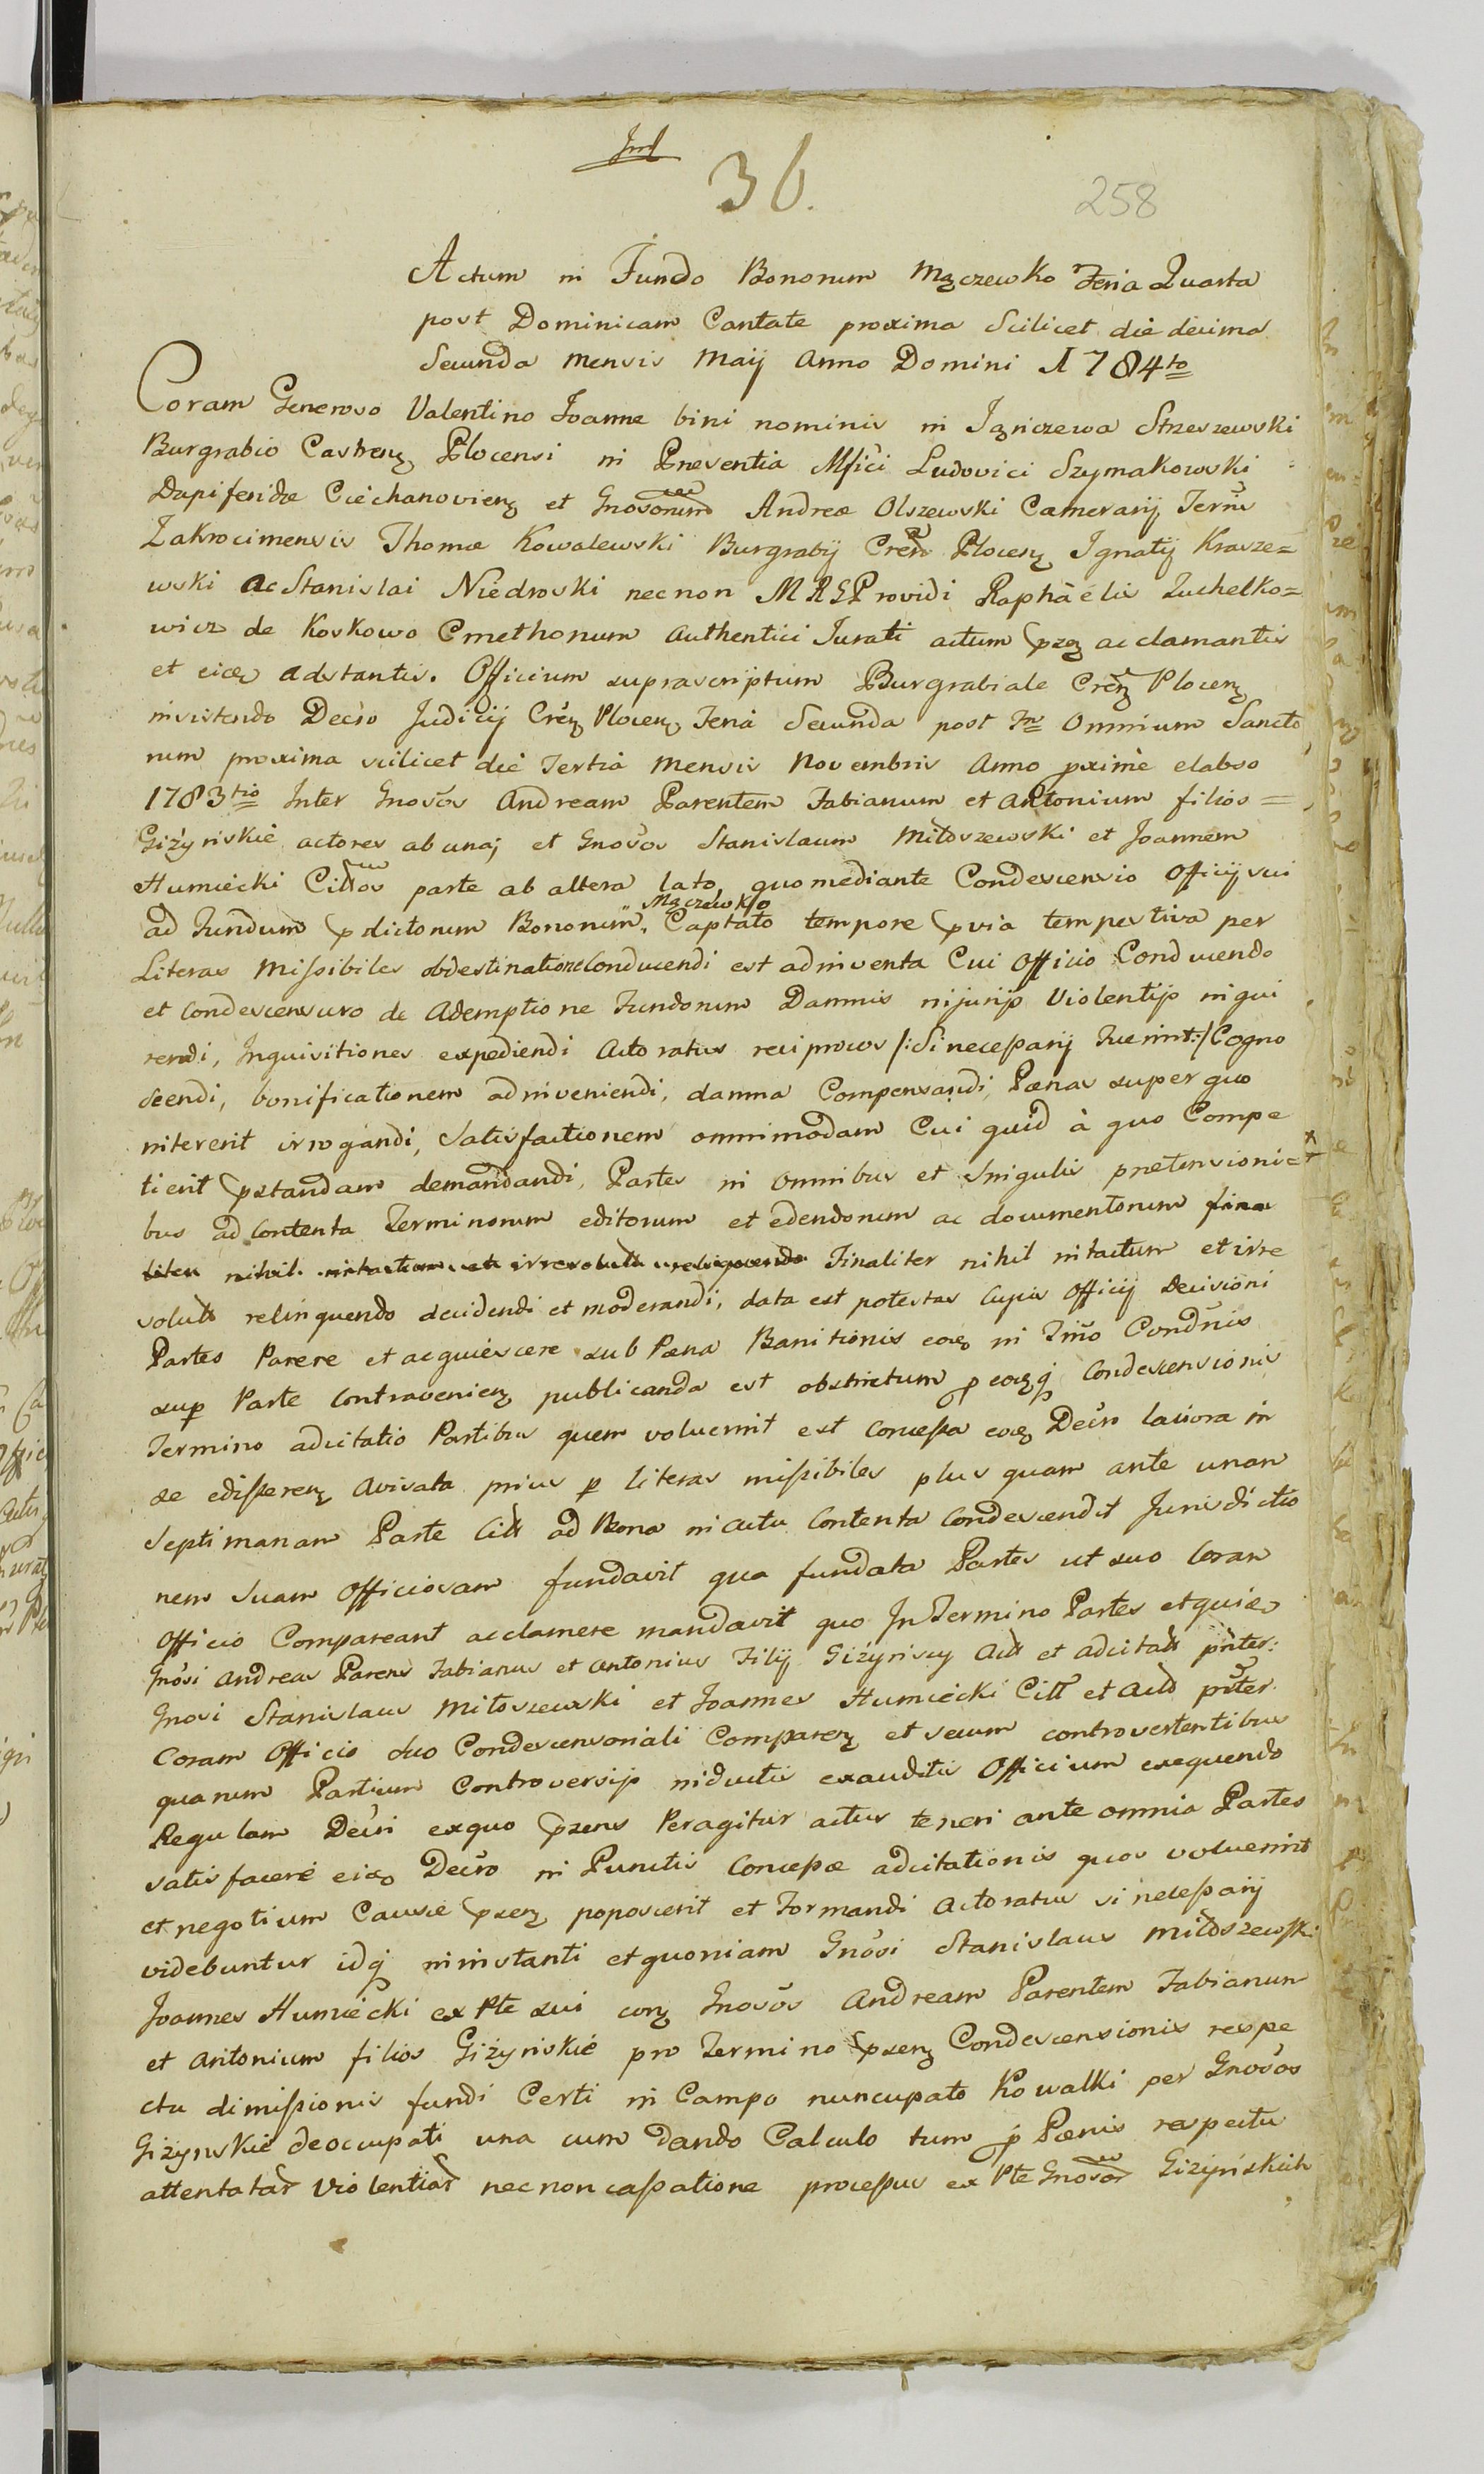 Ind
36.
258
Actum in Fundo Bonorum Mączewko Feria Quarta
post Dominicam Cantate proxima Scilicet die decima
Secunda Mensis Maij Anno Domini 1784to
Coram Generoso Valentino Joanne bini nominis in Jązniczewa Strzeszewski
Burgrabio Castrenz Plocensi in Presentia Mfici Ludovici Szymakowski
Dapiferidæ Ciechanovienz et Gnosorum Andreæ Olszewski Camerarij Terris
Zakrocimensis Thomæ Kowalewski Burgrabij Cren Plocenz Ignatij Krasze=
wski ac Stanislai Niedroski necnon MRS Providi Raphaëlis Zuchelko=
wicz de Koskowo Cmethonum Authentici Jurati actum prnz acclamantis
et eidem adstantis. Officium suprascriptum Burgrabiale Crenz Plocenz
insistendo Decro Judicij Crenz Plocenz Feria Secunda post Fm Omnium Sancto
rum proxima scilicet die Tertia Mensis Novembris Anno pxime elapso
1783tio Inter Gnosos Andream Parentem Fabianum et Antonium filios =
Giżynskie actores ab una et Gnosos Stanislaum Miłoszewski et Joannem
Humiecki Cittos parte ab altera lato, quo mediante Condescensio Officij sui
ad Fundum pdictorum Bonorum Mączewko Captato tempore pvia tempestiva per
Literas Missibiles obdestinatione Conducendi est adinventa Cui Officio Conducendo
et Condescensuro de Ademptione Fundorum Damnis injurijs Violentijs inqui
rendi, Inquisitiones expediendi Actoratus reciprocos /:Si necessarij Fuerint:/ Cogno
scendi, bonificationem adinveniendi, damna Compensandi, Pænas super quo
niterent irrogandi, Satisfactionem omnimodam Cui quid à quo Compe
tierit pstandam demandandi, Partes in Omnibus et Singulis prætensioni=
bus ad Contenta Terminorum editorum et edendorum ac documentorum fina
liter nihil intactum et irrevolutt relinquendo Finaliter nihil intactum et irre
volutt relinquendo decidendi et moderandi, data est potestas Cujus Officij Decisioni
Partes Parere et acquiescere sub Pæna Banitionis eod in Tmo Condnis
sup Parte Contravenienz publicanda est obstrictum p eosq Condescensionis
Termino adcitatio Partibus quem voluerint est Concessa eod Decro latiora in
se edisserenz Avisata prius p literas missibiles plus quam ante unam
Septimanam Parte Citt ad Bona in actu Contenta Condescendit Jurisdictio
nem Suam Officiosam fundavit qua fundata Partes ut suo Coram
Officio Compareant acclamere mandavit quo In Termino Partes etquidem
Gnosi Andreas Parens Fabianus et Antonius Filij Giżynscy Actt et adcitatt pnter:
Gnosi Stanislaus Miłoszewski et Joannes Humiecki Citt et Actt pnter
Coram Officio suo Condescensoriali Comparenz et secum controvertentibus
quarum Partium Controversijs inductis exauditis Officium exequendo
Regulam Decri ex quo przens Peragitur actus teneri ante omnia Partes
satisfacere eidem Decro in Punctis Concessæ adcitationis quos voluerint
et negotium Causæ przenz poposcerit et Formandi Actoratus si necessarij
videbuntur idq ininstanti et quoniam Gnosi Stanislaus Miłoszewski
Joannes Humiecki ex Pte sui conz Gnosos Andream Parentem Fabianum
et Antonium filios Giżynskie pro Termino przenz Condescensionis respe
ctu dimissionis fundi Certi in Campo nuncupato Kowalki per Gnosos
Giżynskie deoccupati una cum dando Calculo tum p Pænis respectu
attentatar Violentiar necnon cassatione processus ex Pte Gnosor Giżynskich